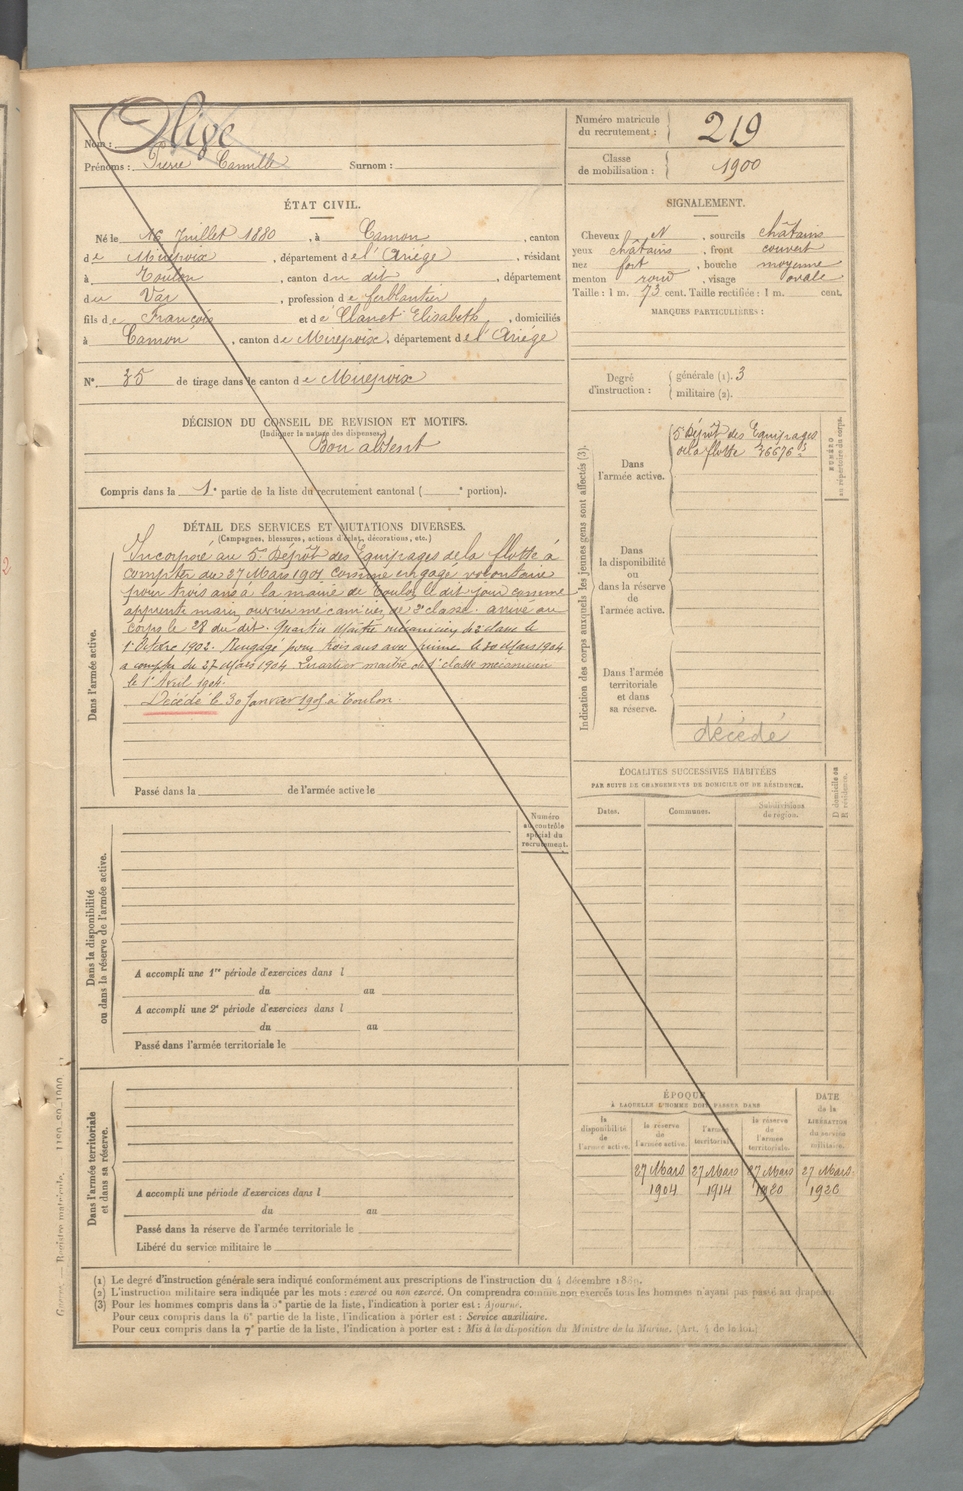 Nom : Olive
Prénoms : Pierre Camille Surnom :
Numéro matricule du recrutement : 219
Classe de mobilisation : 1900
ÉTAT CIVIL.
Né le 16 Juillet 1880, à Camon, canton
de Mirepoix, département de l'Ariège, résidant
à Toulon, canton du dit, département
du Var, profession de ferblantier
fils de François et de Clanet Elisabeth, domiciliés
à Camon, canton de Mirepoix, département de l'Ariége
N° 35 de tirage dans le canton de Mirepoix
SIGNALEMENT.
Cheveux N, sourcils châtains
yeux châtains, front couvert
nez fort, bouche moyenne
menton rond, visage ovale
Taille : 1 m. 73 cent. Taille rectifiée : 1 m. cent.
MARQUES PARTICULIÈRES :
Degré d'instruction : générale (1). 3
militaire (2).
DÉCISION DU CONSEIL DE REVISION ET MOTIFS.
(Indiquer la nature des dispenses.)
Bon absent
Compris dans la 1e partie de la liste du recrutement cantonal ( e portion).
DÉTAIL DES SERVICES ET MUTATIONS DIVERSES.
(Campagnes, blessures, actions d'éclat, décorations, etc.)
Dans l'armée active.
Incorporé au 5e Dépôt des Equipages de la flotte à
compter du 27 Mars 1901 comme engagé volontaire
pour trois ans à la mairie de Toulon le dit jour comme
apprenti marin ouvrier mécanicien de 3e classe. arrivé au
corps le 28 du dit. Quartier Maître mécanicien de 2 classe le
1er Octbre 1902. Rengagé pour trois ans avec prime le 20 Mars 1904
a compter du 27 Mars 1904 Quartier maitre de 1e classe mécanicien
le 1er Avril 1904.
Décédé le 30 Janvier 1905 à Toulon
Passé dans la de l'armée active le
Indication des corps auxquels les jeunes gens sont affectés (3).
NUMÉRO au répertoire du corps.
Dans l'armée active.
5e Dépôt des Equipages
de la flotte 36676
Dans la disponibilité ou dans la réserve de l'armée active.
Dans l'armée territoriale et dans sa réserve.
décédé
LOCALITÉS SUCCESSIVES HABITÉES
PAR SUITE DE CHANGEMENTS DE DOMICILE OU DE RÉSIDENCE.
Dates. Communes. Subdivisions de région. D domicile ou R résidence.
Numéro au contrôle spécial du recrutement.
Dans la disponibilité ou dans la réserve de l'armée active.
A accompli une 1re période d'exercices dans l
du au
A accompli une 2e période d'exercices dans l
du au
Passé dans l'armée territoriale le
Dans l'armée territoriale et dans sa réserve.
A accompli une période d'exercices dans l
du au
Passé dans la réserve de l'armée territoriale le
Libéré du service militaire le
ÉPOQUE
À LAQUELLE L'HOMME DOIT PASSER DANS
la disponibilité de l'armée active. la réserve de l'armée active. l'armée territoriale. la réserve de l'armée territoriale.
DATE de la LIBÉRATION du service militaire.
27 Mars 27 Mars 27 Mars 27 Mars
1904 1914 1920 1926
(1) Le degré d'instruction générale sera indiqué conformément aux prescriptions de l'instruction du 4 décembre 1889.
(2) L'instruction militaire sera indiquée par les mots : exercé ou non exercé. On comprendra comme non exercés tous les hommes n'ayant pas passé au drapeau.
(3) Pour les hommes compris dans la 5e partie de la liste, l'indication à porter est : Ajourné.
Pour ceux compris dans la 6e partie de la liste, l'indication à porter est : Service auxiliaire.
Pour ceux compris dans la 7e partie de la liste, l'indication à porter est : Mis à la disposition du Ministre de la Marine. (Art. 4 de la loi.)